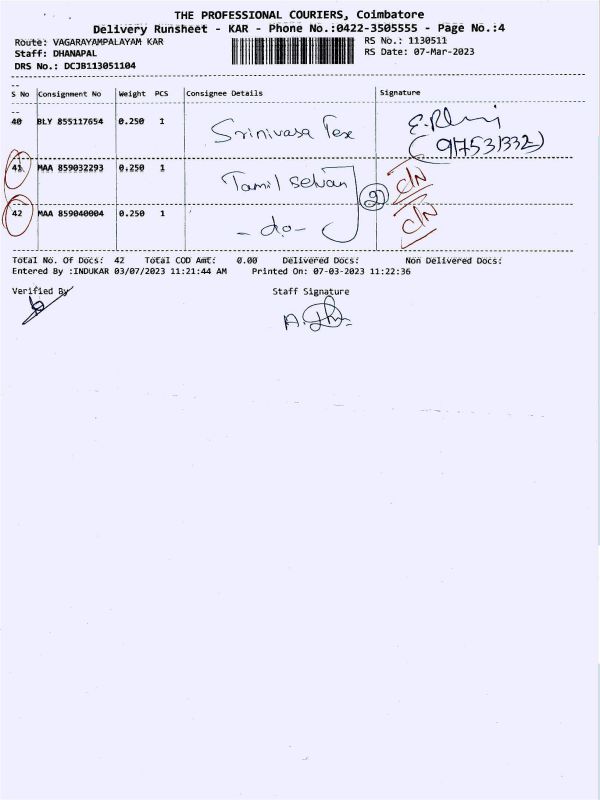 THE PROFESSIONAL COURIERS, Coimbatore
Delivery Runsheet - KAR - Phone No.:0422-3505555 - Page No.:4
Route: VAGARAYAMPALAYAM KAR
RS No.: 1130511
Staff: DHANAPAL
RS Date: 07-Mar-2023
DRS No.: DCJB113051104
S No Consignment No Weight PCS Consignee Details Signature
40 BLY 855117654 0.250 1 Srinivasa Tex
(917531332)
41 MAA 859032293 0.250 1 Tamil selvan C/N
2
42 MAA 859040004 0.250 1 - do - C/N
Total No. Of Docs: 42 Total COD Amt: 0.00 Delivered Docs: Non Delivered Docs:
Entered By :INDUKAR 03/07/2023 11:21:44 AM Printed On: 07-03-2023 11:22:36
Verified By Staff Signature